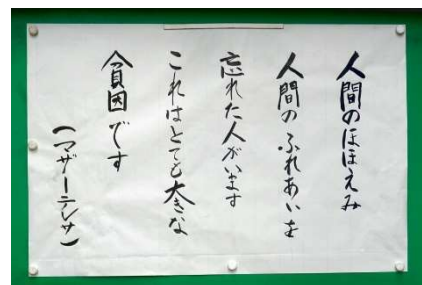 人間のほほえみ
人間のふれあいを
忘れた人がいます
これはとても大きな
貧困です
（マザーテレサ）